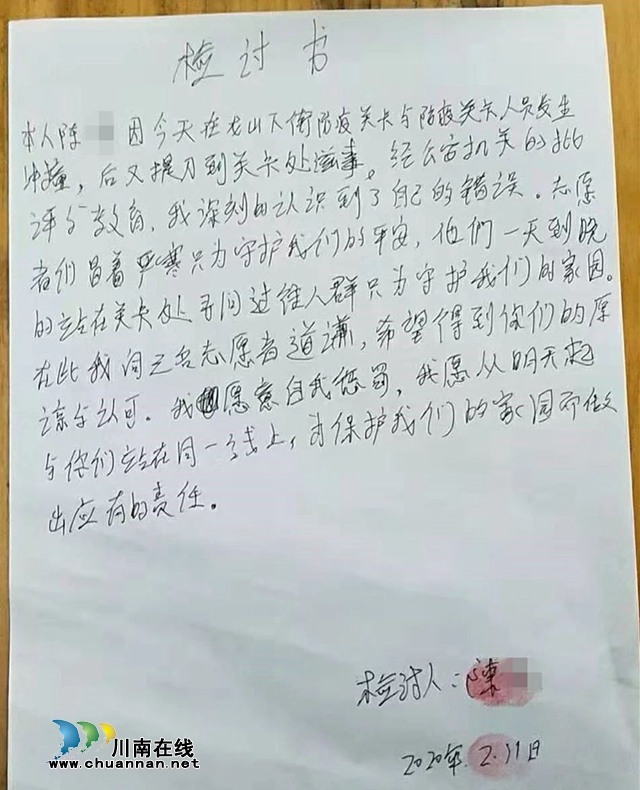 检讨书
本人陈 因今天在龙山下街防疫关卡与防疫关卡人员发生
冲撞，后又提刀到关卡处滋事。经公安机关的批
评与教育，我深刻的认识到了自己的错误。志愿
者们冒着严寒只为守护我们的平安，他们一天到晚
的站在关卡处 问过往人群只为守护我们的家园。
在此我向已名志愿者道谦，希望得到你们的原
谅与认可。我愿意自我惩罚，我愿从明天起
与你们站在同一线上，为保护我们的家园而做
出应有的责任。
检讨人：陈
2020年.2.11日
川南在线
www.chuannan.net